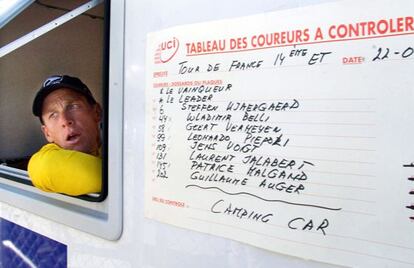 uci
TABLEAU DES COUREURS A CONTROLER
ÉPREUVE TOUR DE FRANCE 14ÈME ET DATE: 22-0
COUREURS: DOSSARDS OU PLAQUES
LE VAINQUEUR
LE LEADER
6 STEFFEN KJAERGAARD
44 WLADIMIR BELLI
58 GEERT VERHEYEN
99 LEONARDO PIEPOLI
109 JENS VOGT
131 LAURENT JALABERT
145 PATRICE HALGAND
202 GUILLAUME AUGER
LIEU DU CONTROLE:
CAMPING CAR